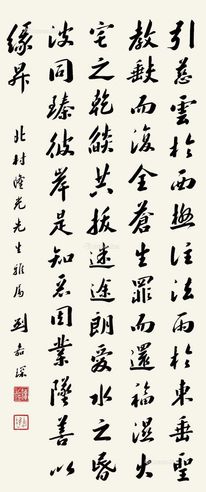 引慈雲於西極注法雨於東垂聖
教缺而復全蒼生罪而還福濕火
宅之乾燄共拔迷途朗愛水之昏
波同臻彼岸是知惡因業墜善以
緣昇
北村隆光先生雅属 劉嘉琛